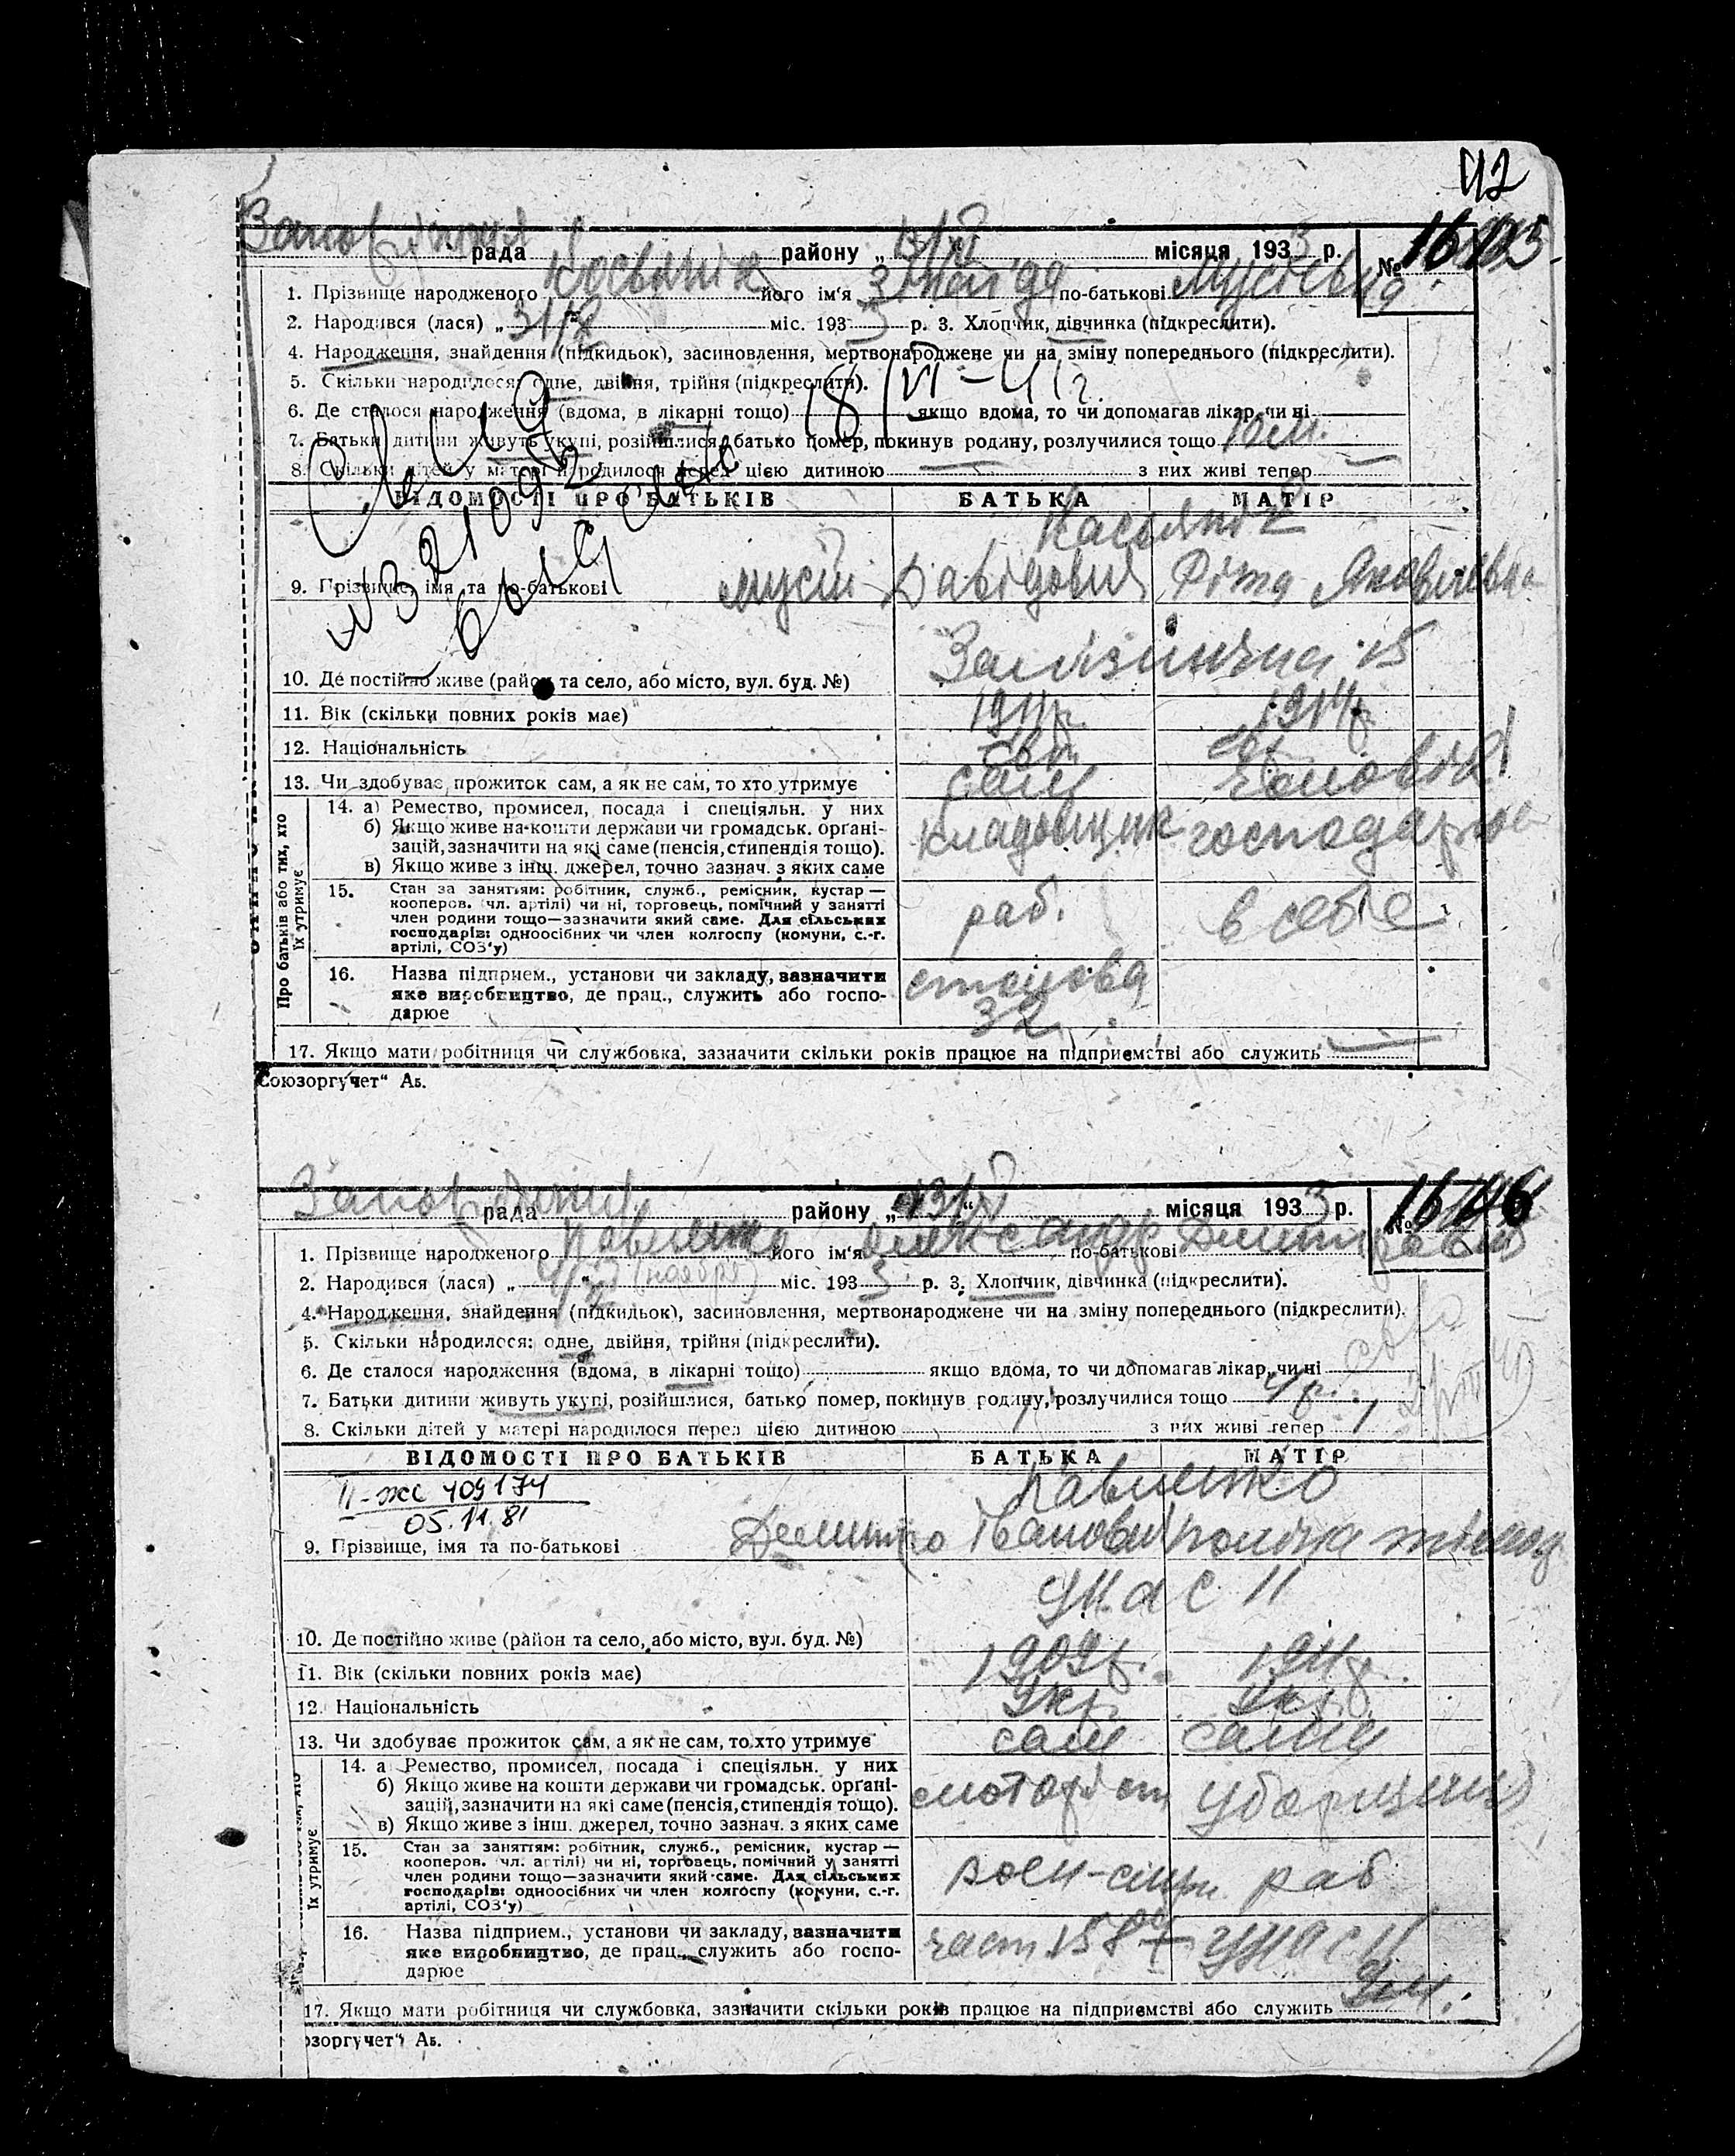 42
рада району „13/XI“ місяця 1933 р. № 16
1. Прізвище народженого його ім'я Зінаїда по-батькові Мусієвна
2. Народився (лася) „31/X“ міс. 1933 р. 3. Хлопчик, дівчинка (підкреслити).
4. Народження, знайдення (підкидьок), засиновлення, мертвонароджене чи на зміну попереднього (підкреслити).
5. Скільки народилося: одне, двійня, трійня (підкреслити).
6. Де сталося народження (вдома, в лікарні тощо) якщо вдома, то чи допомагав лікар, чи ні
18/VI-41г.
7. Батьки дитини живуть укупі, розійшлися, батько помер, покинув родину, розлучилися тощо
8. Скільки дітей у матері народилося перед цією дитиною — з них живі тепер —
ВІДОМОСТІ ПРО БАТЬКІВ БАТЬКА МАТІР
9. Прізвище, імя та по-батькові Мусій Давідович Ріта Яковлевна
10. Де постійно живе (район та село, або місто, вул. буд. №) Залізнична 15
11. Вік (скільки повних років має) 1911р. 1914р.
12. Національність євр. євр.
13. Чи здобуває прожиток сам, а як не сам, то хто утримує сам чоловік
14. а) Ремество, промисел, посада і спеціяльн. у них
б) Якщо живе на кошти держави чи громадськ. орґані-
зацій, зазначити на які саме (пенсія, стипендія тощо). кладовщик господарка
в) Якщо живе з інш. джерел, точно зазнач. з яких саме
Про батьків або тих, хто їх утримує
15. Стан за заняттям: робітник, служб., ремісник, кустар —
кооперов. (чл. артілі) чи ні, торговець, помічний у занятті
член родини тощо—зазначити який саме. Для сільських
господарів: одноосібних чи член колгоспу (комуни, с.-г.
артілі, СОЗ'у) раб. в себе
16. Назва підприєм., установи чи закладу, зазначити
яке виробництво, де прац., служить або госпо-
дарює столова 32
17. Якщо мати робітниця чи службовка, зазначити скільки років працює на підприємстві або служить —
Союзоргучет“ Аб.
рада району „13/XI“ місяця 1933 р. № 16
1. Прізвище народженого Павленко його ім'я Александр по-батькові Дмитрович
2. Народився (лася) „ “ (ноября) міс. 1933 р. 3. Хлопчик, дівчинка (підкреслити).
4. Народження, знайдення (підкидьок), засиновлення, мертвонароджене чи на зміну попереднього (підкреслити).
5. Скільки народилося: одне, двійня, трійня (підкреслити).
6. Де сталося народження (вдома, в лікарні тощо) якщо вдома, то чи допомагав лікар, чи ні
7. Батьки дитини живуть укупі, розійшлися, батько помер, покинув родину, розлучилися тощо
8. Скільки дітей у матері народилося перед цією дитиною 1 з них живі тепер 1
ВІДОМОСТІ ПРО БАТЬКІВ БАТЬКА МАТІР
II-жс 409174
05.11.81
Павленко
9. Прізвище, імя та по-батькові Дмитро Іванович
10. Де постійно живе (район та село, або місто, вул. буд. №)
11. Вік (скільки повних років має) 1909р. 1911р.
12. Національність Укр. Укр.
13. Чи здобуває прожиток сам, а як не сам, то хто утримує сам сама
14. а Ремество, промисел, посада і спеціяльн. у них
б) Якщо живе на кошти держави чи громадськ. орґані-
зацій, зазначити на які саме (пенсія, стипендія тощо). уборщиця
в) Якщо живе з інш. джерел, точно зазнач. з яких саме
їх утримує
15. Стан за заняттям: робітник, служб., ремісник, кустар —
кооперов. (чл. артілі) чи ні, торговець, помічний у занятті
член родини тощо—зазначити який саме. Для сільських
господарів: одноосібних чи член колгоспу (комуни, с.-г.
артілі, СОЗ'у) раб
16. Назва підприєм., установи чи закладу, зазначити
яке виробництво, де прац., служить або госпо-
дарює
17. Якщо мати робітниця чи службовка, зазначити скільки років працює на підприємстві або служить
озоргучет“ Аб.